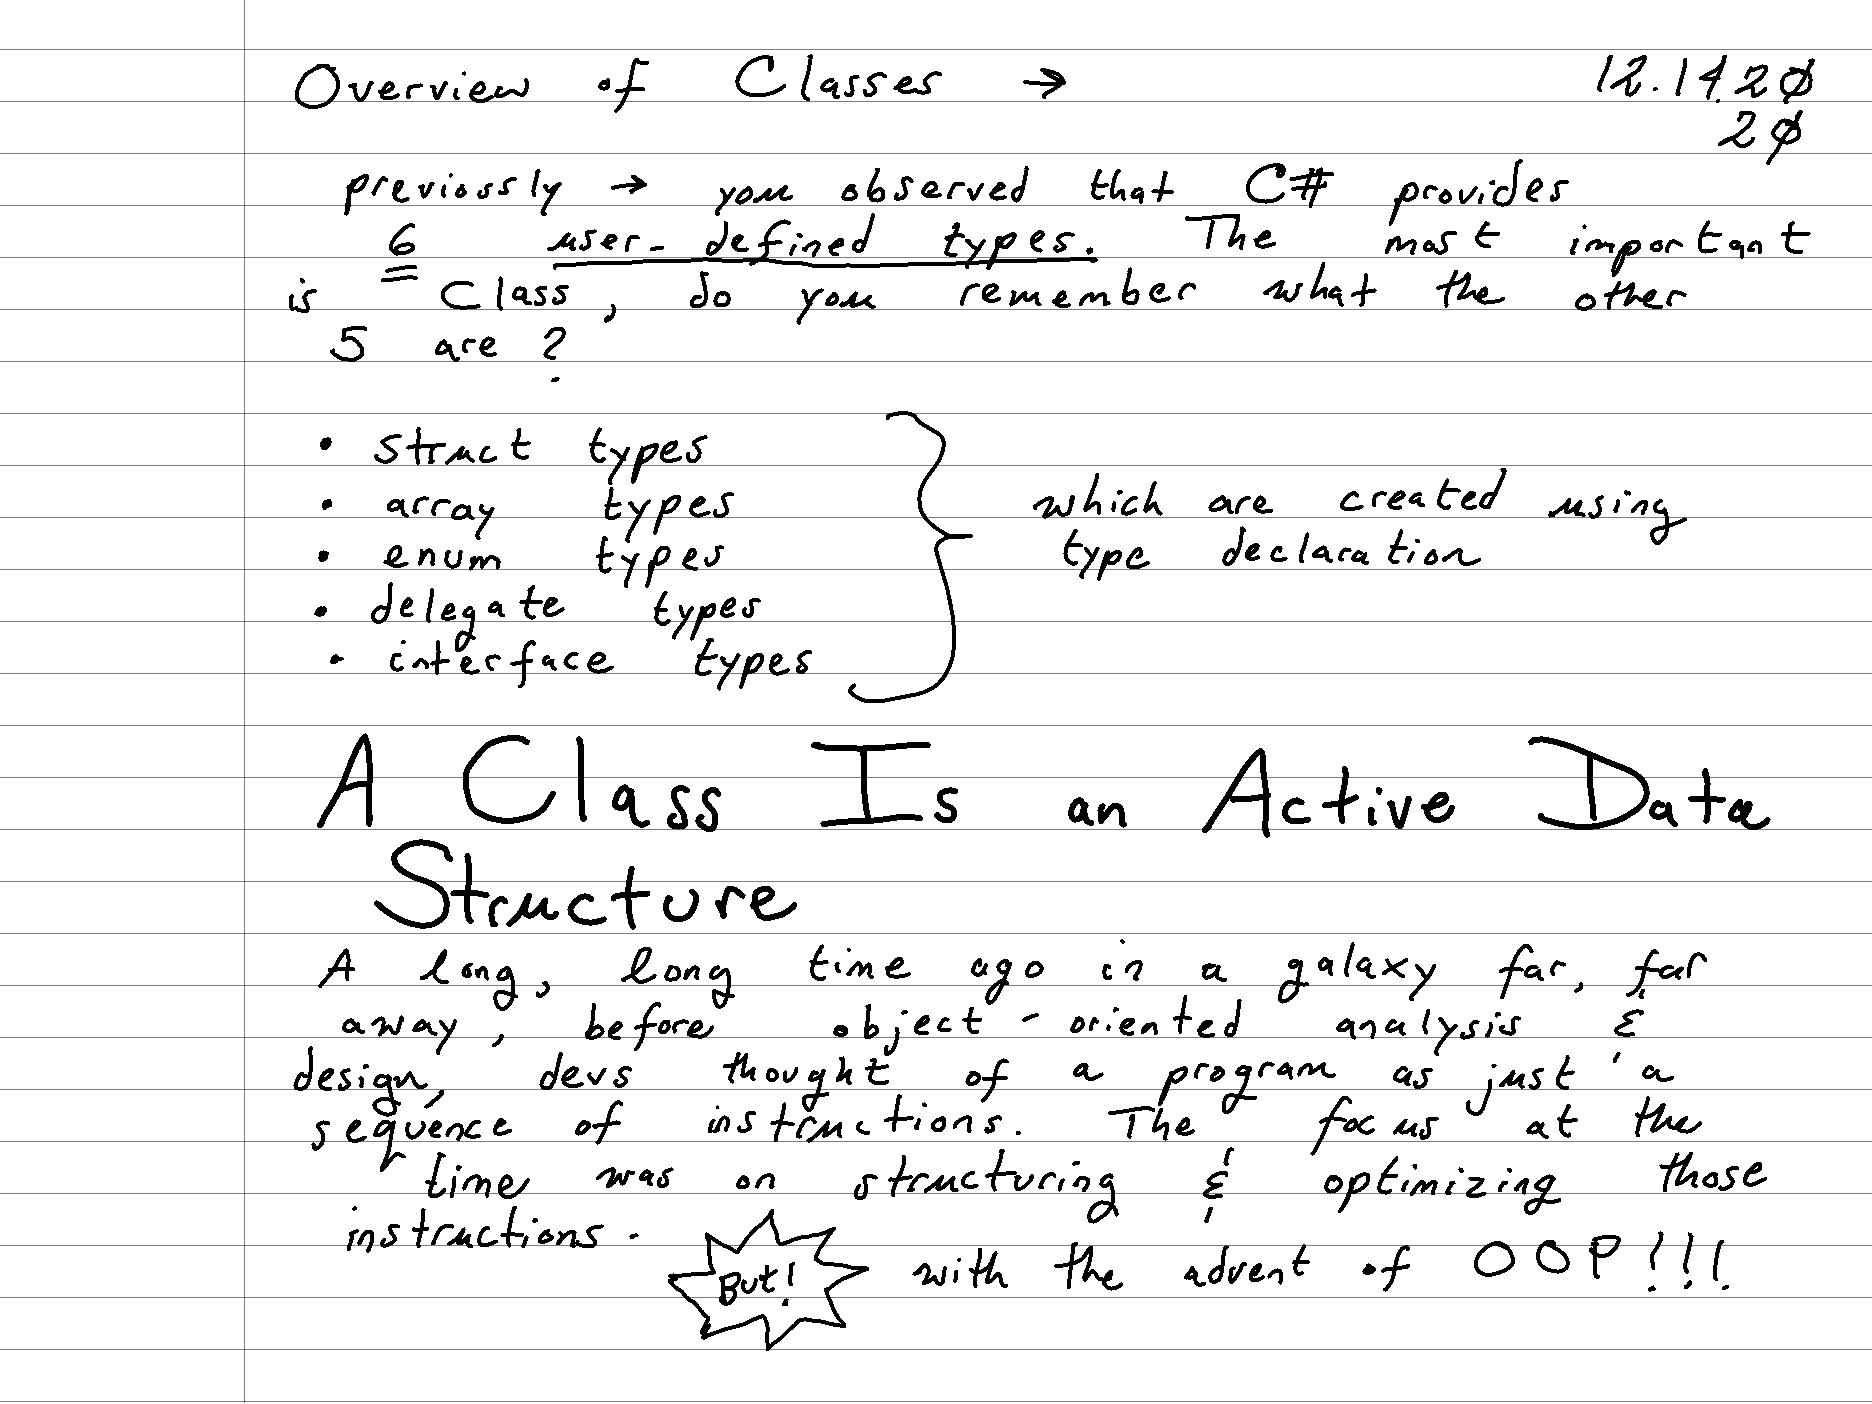 Overview of Classes → 12.14.2020
previossly → you observed that C# provides
6 user-defined types. The most important
is Class, do you remember what the other
5 are?
• struct types
• array types
• enum types
• delegate types
• interface types
which are created using
type declaration
A Class Is an Active Data
Structure
A long, long time ago in a galaxy far, far
away, before object-oriented analysis &
design, devs thought of a program as just a
sequence of instructions. The focus at the
time was on structuring & optimizing those
instructions.
But! with the advent of OOP!!!